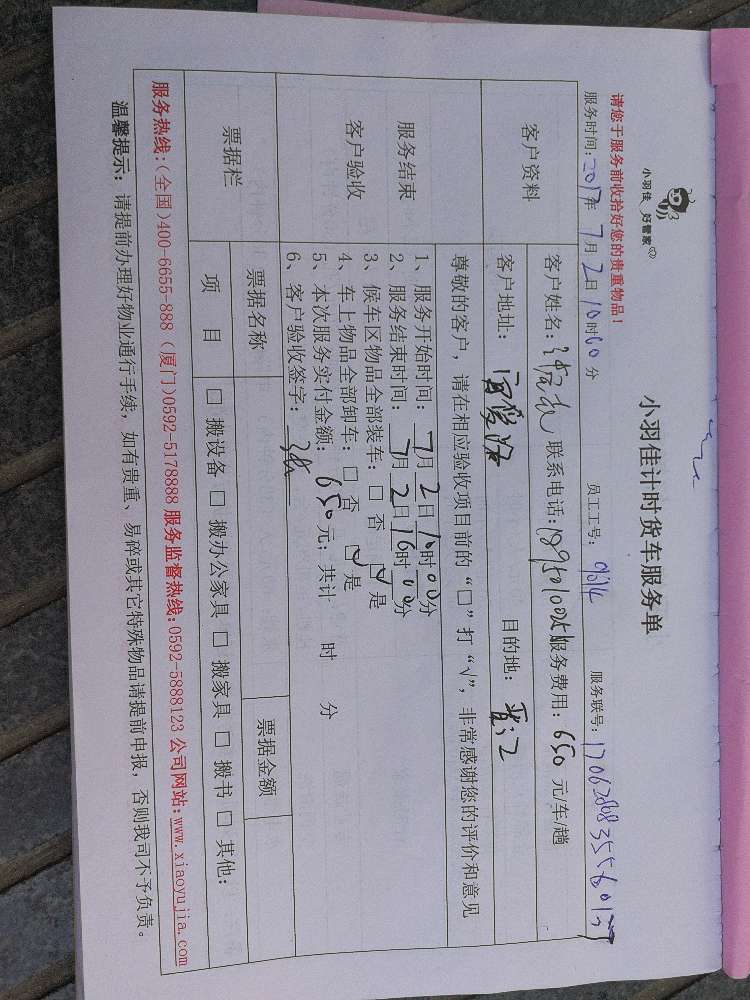 小羽佳 好管家
小羽佳计时货车服务单
请您于服务前收拾好您的贵重物品！
服务时间：2017年 7月 2日 10时 00分 员工工号： 服务联号：
客户资料
客户姓名： 联系电话： 服务费用：650元/车/趟
客户地址： 目的地：晋江
服务结束
客户验收
尊敬的客户，请在相应验收项目前的“□”打“√”，非常感谢您的评价和意见
1、服务开始时间：7月2日10时00分
2、服务结束时间：7月2日16时00分
3、候车区物品全部装车：□否 ☑是
4、车上物品全部卸车：□否 ☑是
5、本次服务实付金额：650元；共计 时 分
6、客户验收签字：
票据栏
票据名称 票据金额
项 目 □搬设备 □搬办公家具 □搬家具 □搬书 □其他：
服务热线：(全国)400-6655-888 (厦门)0592-5178888 服务监督热线：0592-5888123 公司网站：www.xiaoyujia.com
温馨提示：请提前办理好物业通行手续，如有贵重、易碎或其它特殊物品请提前申报，否则我司不予负责。